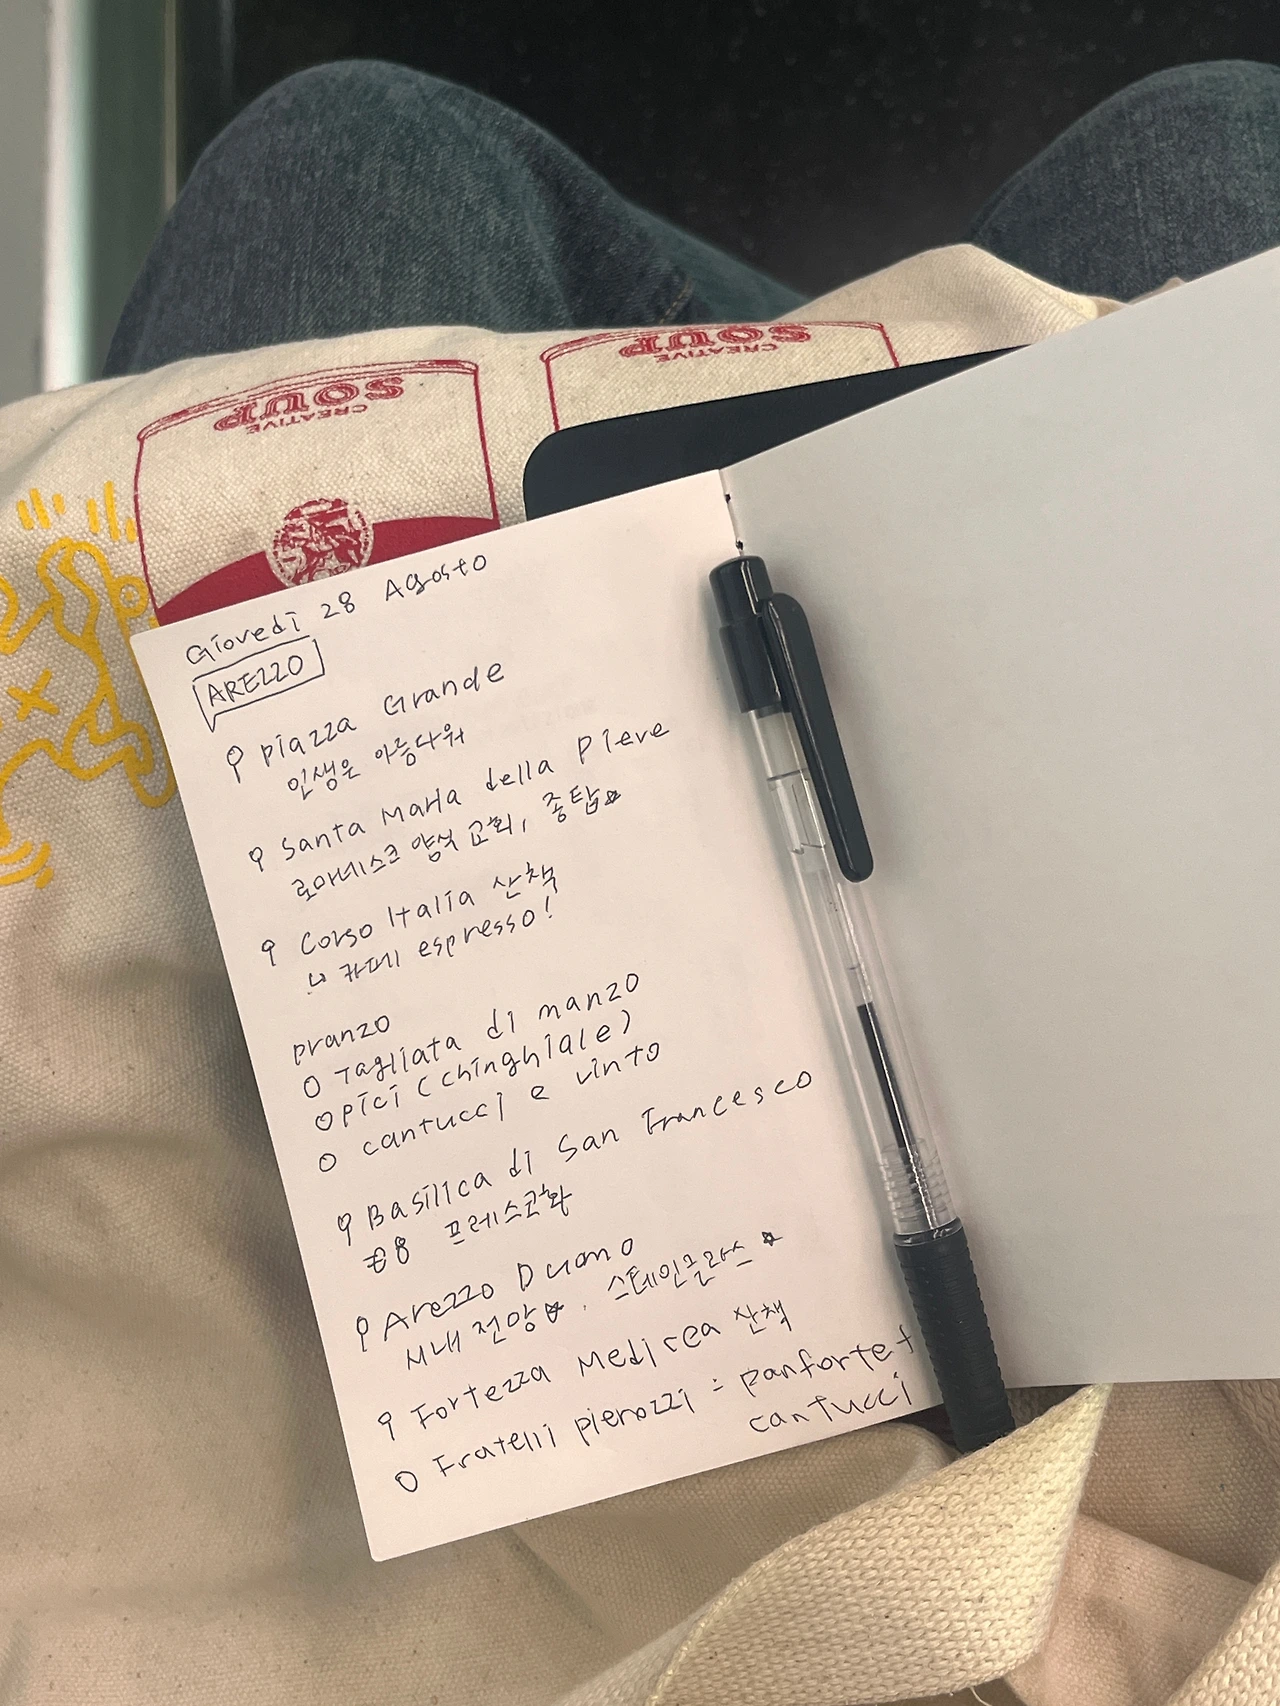 CREATIVE
SOUP
CREATIVE
SOUP
Giovedì 28 Agosto
AREZZO
Piazza Grande
인생은 아름다워
Santa Maria della Pieve
로마네스크 양식 교회, 종탑☆
Corso Italia 산책
↳ 카페 espresso!
pranzo
O Tagliata di manzo
O pici (chinghiale)
O cantucci e vinto
Basilica di San Francesco
€8 프레스코화
Arezzo Duomo
시내 전망☆, 스테인글라스☆
Fortezza Medicea 산책
O Fratelli pierozzi : panforte +
cantucci